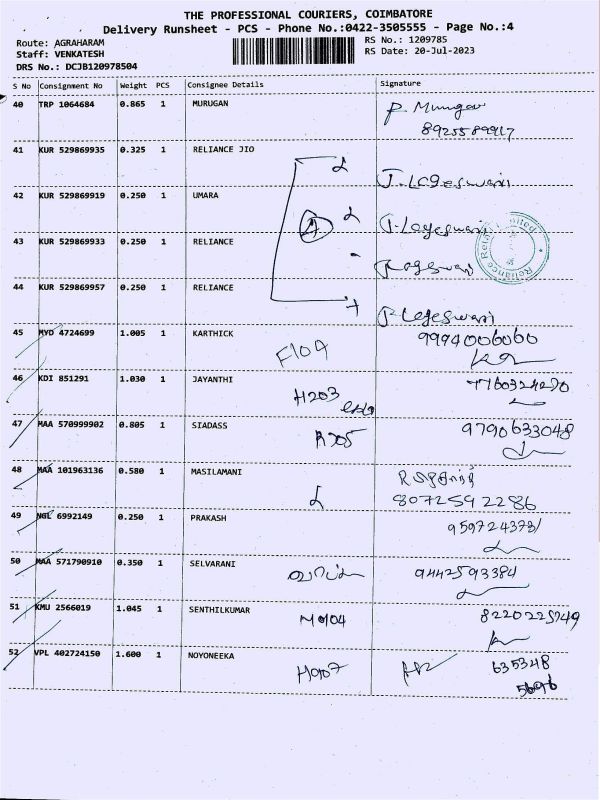 THE PROFESSIONAL COURIERS, COIMBATORE
Delivery Runsheet - PCS - Phone No.:0422-3505555 - Page No.:4
Route: AGRAHARAM
RS No.: 1209785
Staff: VENKATESH
RS Date: 20-Jul-2023
DRS No.: DCJB120978504
S No Consignment No Weight PCS Consignee Details Signature
40 TRP 1064684 0.865 1 MURUGAN P. Murugan
41 KUR 529869935 0.325 1 RELIANCE JIO J. Logeswari
42 KUR 529869919 0.250 1 UMARA
43 KUR 529869933 0.250 1 RELIANCE
44 KUR 529869957 0.250 1 RELIANCE
45 MYD 4724699 1.005 1 KARTHICK F104 9994006060
46 KDI 851291 1.030 1 JAYANTHI H203
47 MAA 570999902 0.805 1 SIADASS 9790633048
48 MAA 101963136 0.580 1 MASILAMANI
8072592286
49 NGL 6992149 0.250 1 PRAKASH
50 MAA 571790910 0.350 1 SELVARANI 9442593384
51 KMU 2566019 1.045 1 SENTHILKUMAR
52 VPL 402724150 1.600 1 NOYONEEKA 635348
5696